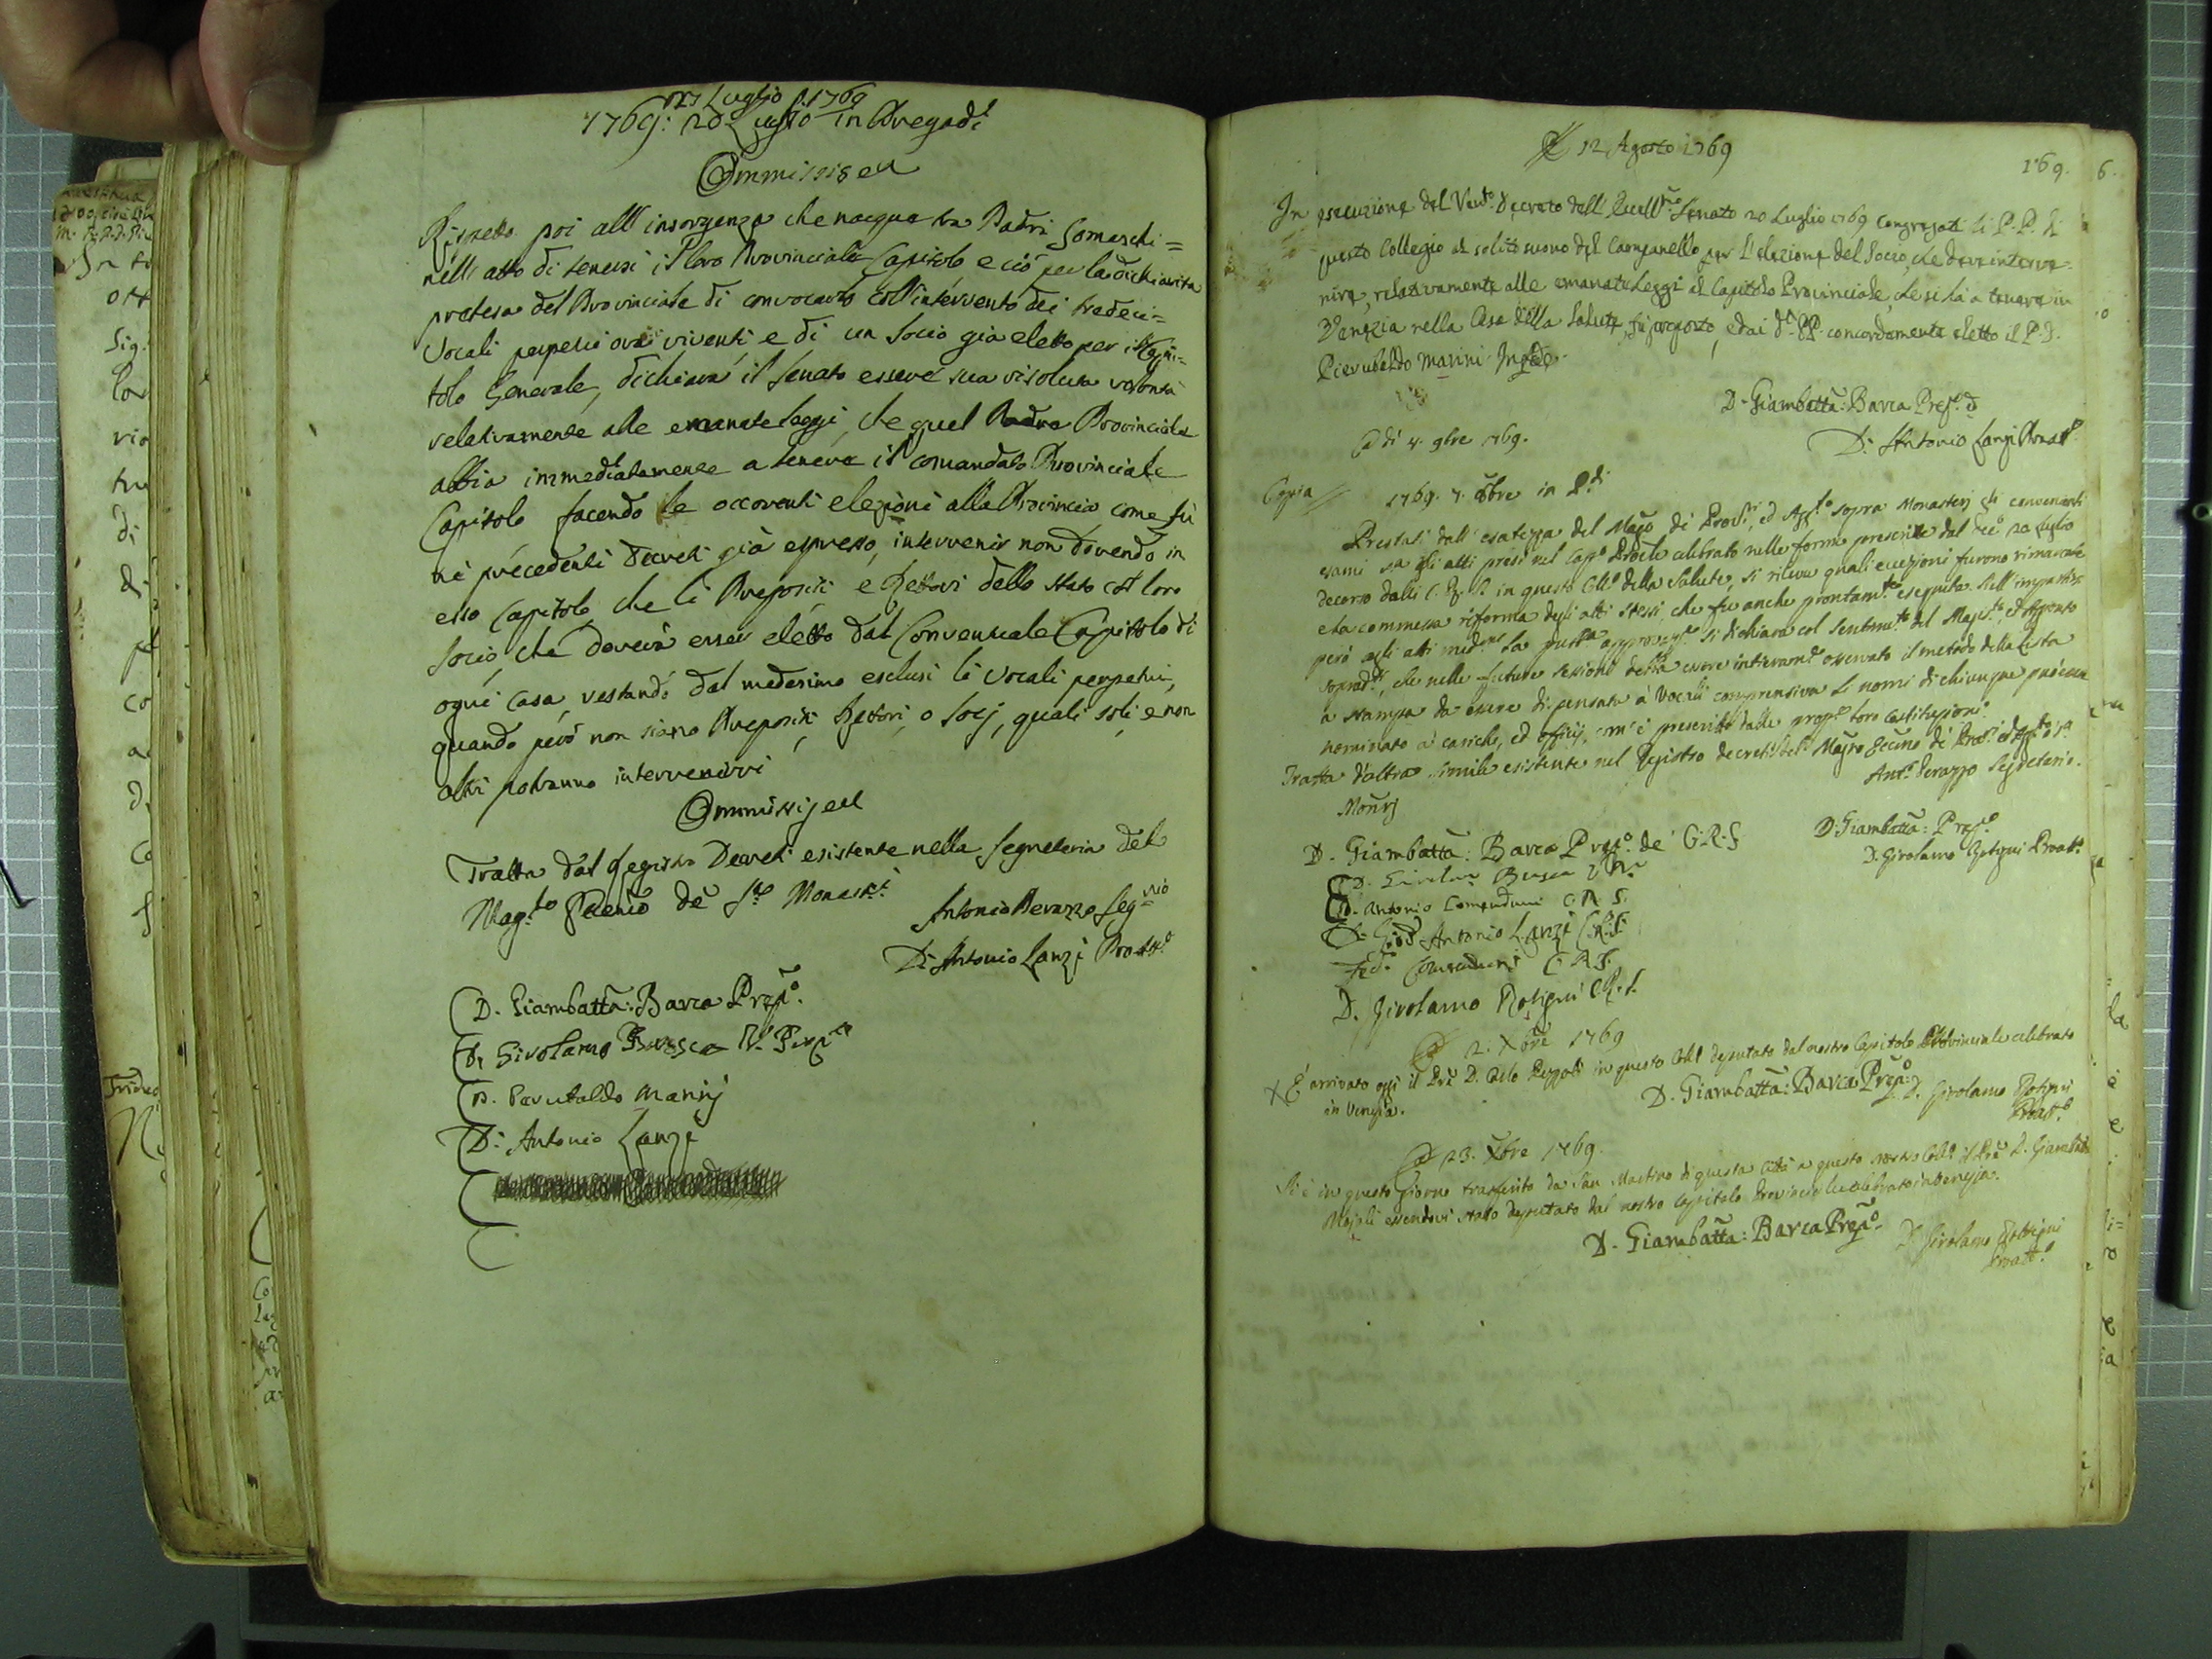 27 Luglio 1769
1769: 20 Luglio in Pregadi
Ommissis ea
Rispetto poi all'insorgenza che nacque tra Padri Somaschi=
nell'atto di tenersi il loro Provinciale Capitolo e ciò per la dichiarita
pretesa del Provinciale di convocarlo coll'intervento dei tredeci=
Vocali perpetui ora viventi e di un Socio già eletto per il Capi=
tolo Generale, dichiara il Senato essere sua risoluta volontà
relativamente alle emanate leggi, che quel Padre Provinciale
abbia immediatamente a tenere il comandato Provinciale
Capitolo facendo le occorenti elezioni alla Provincia come fù
ne precedenti Decreti già espresso, intervenir non dovendo in
esso Capitolo che li Prepositi e Rettori dello Stato col loro
Socio, che doverà esser eletto dal Conventuale Capitolo di
ogni Casa, restando dal medesimo esclusi li Vocali perpetui,
quando però non siano Prepositi Rettori, o Socj, quali soli, e non
altri potranno intervenirvi
Ommissis ea
Tratta dal Registro Decreti esistente nella Segreteria del
Mag.to de S.a Monast.i
Antonio Perazzo Seg.rio
D. Antonio Lanzi Proatt.o
D. Giambatta: Barca Prep.o
D. Girolamo Brusca V. Prep.o
D. Pierubaldo Marinj
D. Antonio Lanzi
12 Agosto 1769
169.
6.
In esecuzione del Ven.do Decreto dell'Ecell.mo Senato 20 Luglio 1769 Congregati li P.P. di
questo Collegio al solito suono del Campanello per l'elezione del Socio, che deve interve=
nire, relativamente alle emanate Leggi al Capitolo Provinciale, che si ha a tenere in
Venezia nella Casa della Salute, fu proposto, ed ai d.i PP. concordemente eletto il P. D.
Pierubaldo Marini. In fede.
D. Giambatta: Barca Prep.o
D. Antonio Lanzi Proatt.o
A dì 4. 9bre 1769.
Copia
1769. 7. 8bre in P.di
Prestati dall'esatezza del Mag.to di Prov.ri, ed Agg.to sopra Monasterj gli convenienti
esami s.a gli atti presi nel Cap.o Prov.le celebrato nelle forme prescritte dal Dec.o 20 Luglio
decorso dalli C. R. S. in questo Coll.o della Salute, si rileva quali eccezioni furono rimarcate
e la commessa riforma degli atti stessi che fu anche prontam.te eseguita. Nell'impartirsi
però agli atti med.mi la pub.ca approvaz.e si dichiara col sentim.to del Magis.to, ed Aggionto
soprad.ti, che nelle future sessioni debba essere intieram.e osservato il metodo della Lista
a stampa da essere dispensata a' Vocali comprensiva li nomi di chiunque può esser
nominato a' cariche, ed officij, com'è prescritto dalle prop.e loro Costituzioni.
Tratta d'altra simile esistente nel Registro decreti del Mag.to Eccmo di Prov.i ed Agg.to s.a
Mon.rj
Ant.o Perazzo Segretario.
D. Giambatta: Barca Prep.o de' C.R.S
D. Giambatta: Prep.o
D. Girolamo Rotigni Proatt.o
D. Girolamo Brusca V. Pr.o
D. Antonio Comenduni C. R. S.
D. Gio. Antonio Lanzi C.R.S.
Comenduni C. R. S.
D. Girolamo Rotigni C.R.S.
2. Xbre 1769
X È arrivato oggi il Pre D. Carlo Pezzoli in questo Coll.o deputato dal nostro Capitolo Provinciale celebrato
in Venezia.
D. Giambatta: Barca Prep.o
D. Girolamo Rotigni
Proatt.o
23. Xbre 1769.
Si è in questo Giorno trasferito da San Martino di questa Città a questo nostro Coll.o il Pre D. Giambatta
essendovi stato deputato dal nostro Capitolo Provinciale celebrato in Venezia.
D. Giambatta: Barca Prep.o
D. Girolamo Rotigni
Proatt.o